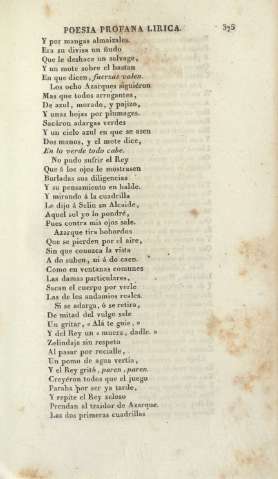 POESIA PROFANA LIRICA. 375
Y por mangas almaizales.
Era su divisa un ñudo
Que le deshace un salvage,
Y un mote sobre el baston
En que dicen, fuerzas valen.
Los ocho Azarques siguiéron
Mas que todos arrogantes,
De azul, morado, y pajizo,
Y unas hojas por plumages.
Sacáron adargas verdes
Y un cielo azul en que se asen
Dos manos, y el mote dice,
En lo verde todo cabe.
No pudo sufrir el Rey
Que á los ojos le mostrasen
Burladas sus diligencias
Y su pensamiento en balde.
Y mirando á la cuadrilla
Le dijo á Selin su Alcaide,
Aquel sol yo lo pondré,
Pues contra mis ojos sale.
Azarque tira bohordos
Que se pierden por el aire,
Sin que conozca la vista
A do suben, ni á do caen.
Como en ventanas comunes
Las damas particulares,
Sacan el cuerpo por verle
Las de los andamios reales.
Si se adarga, ó se retira,
De mitad del vulgo sale
Un gritar, « Alá te guie, »
Y del Rey un « muera, dadle. »
Zelindaja sin respeto
Al pasar por rocialle,
Un pomo de agua vertia,
Y el Rey gritó, paren, paren.
Creyéron todos que el juego
Paraba por ser ya tarde,
Y repite el Rey zeloso
Prendan al traidor de Azarque.
Las dos primeras cuadrillas